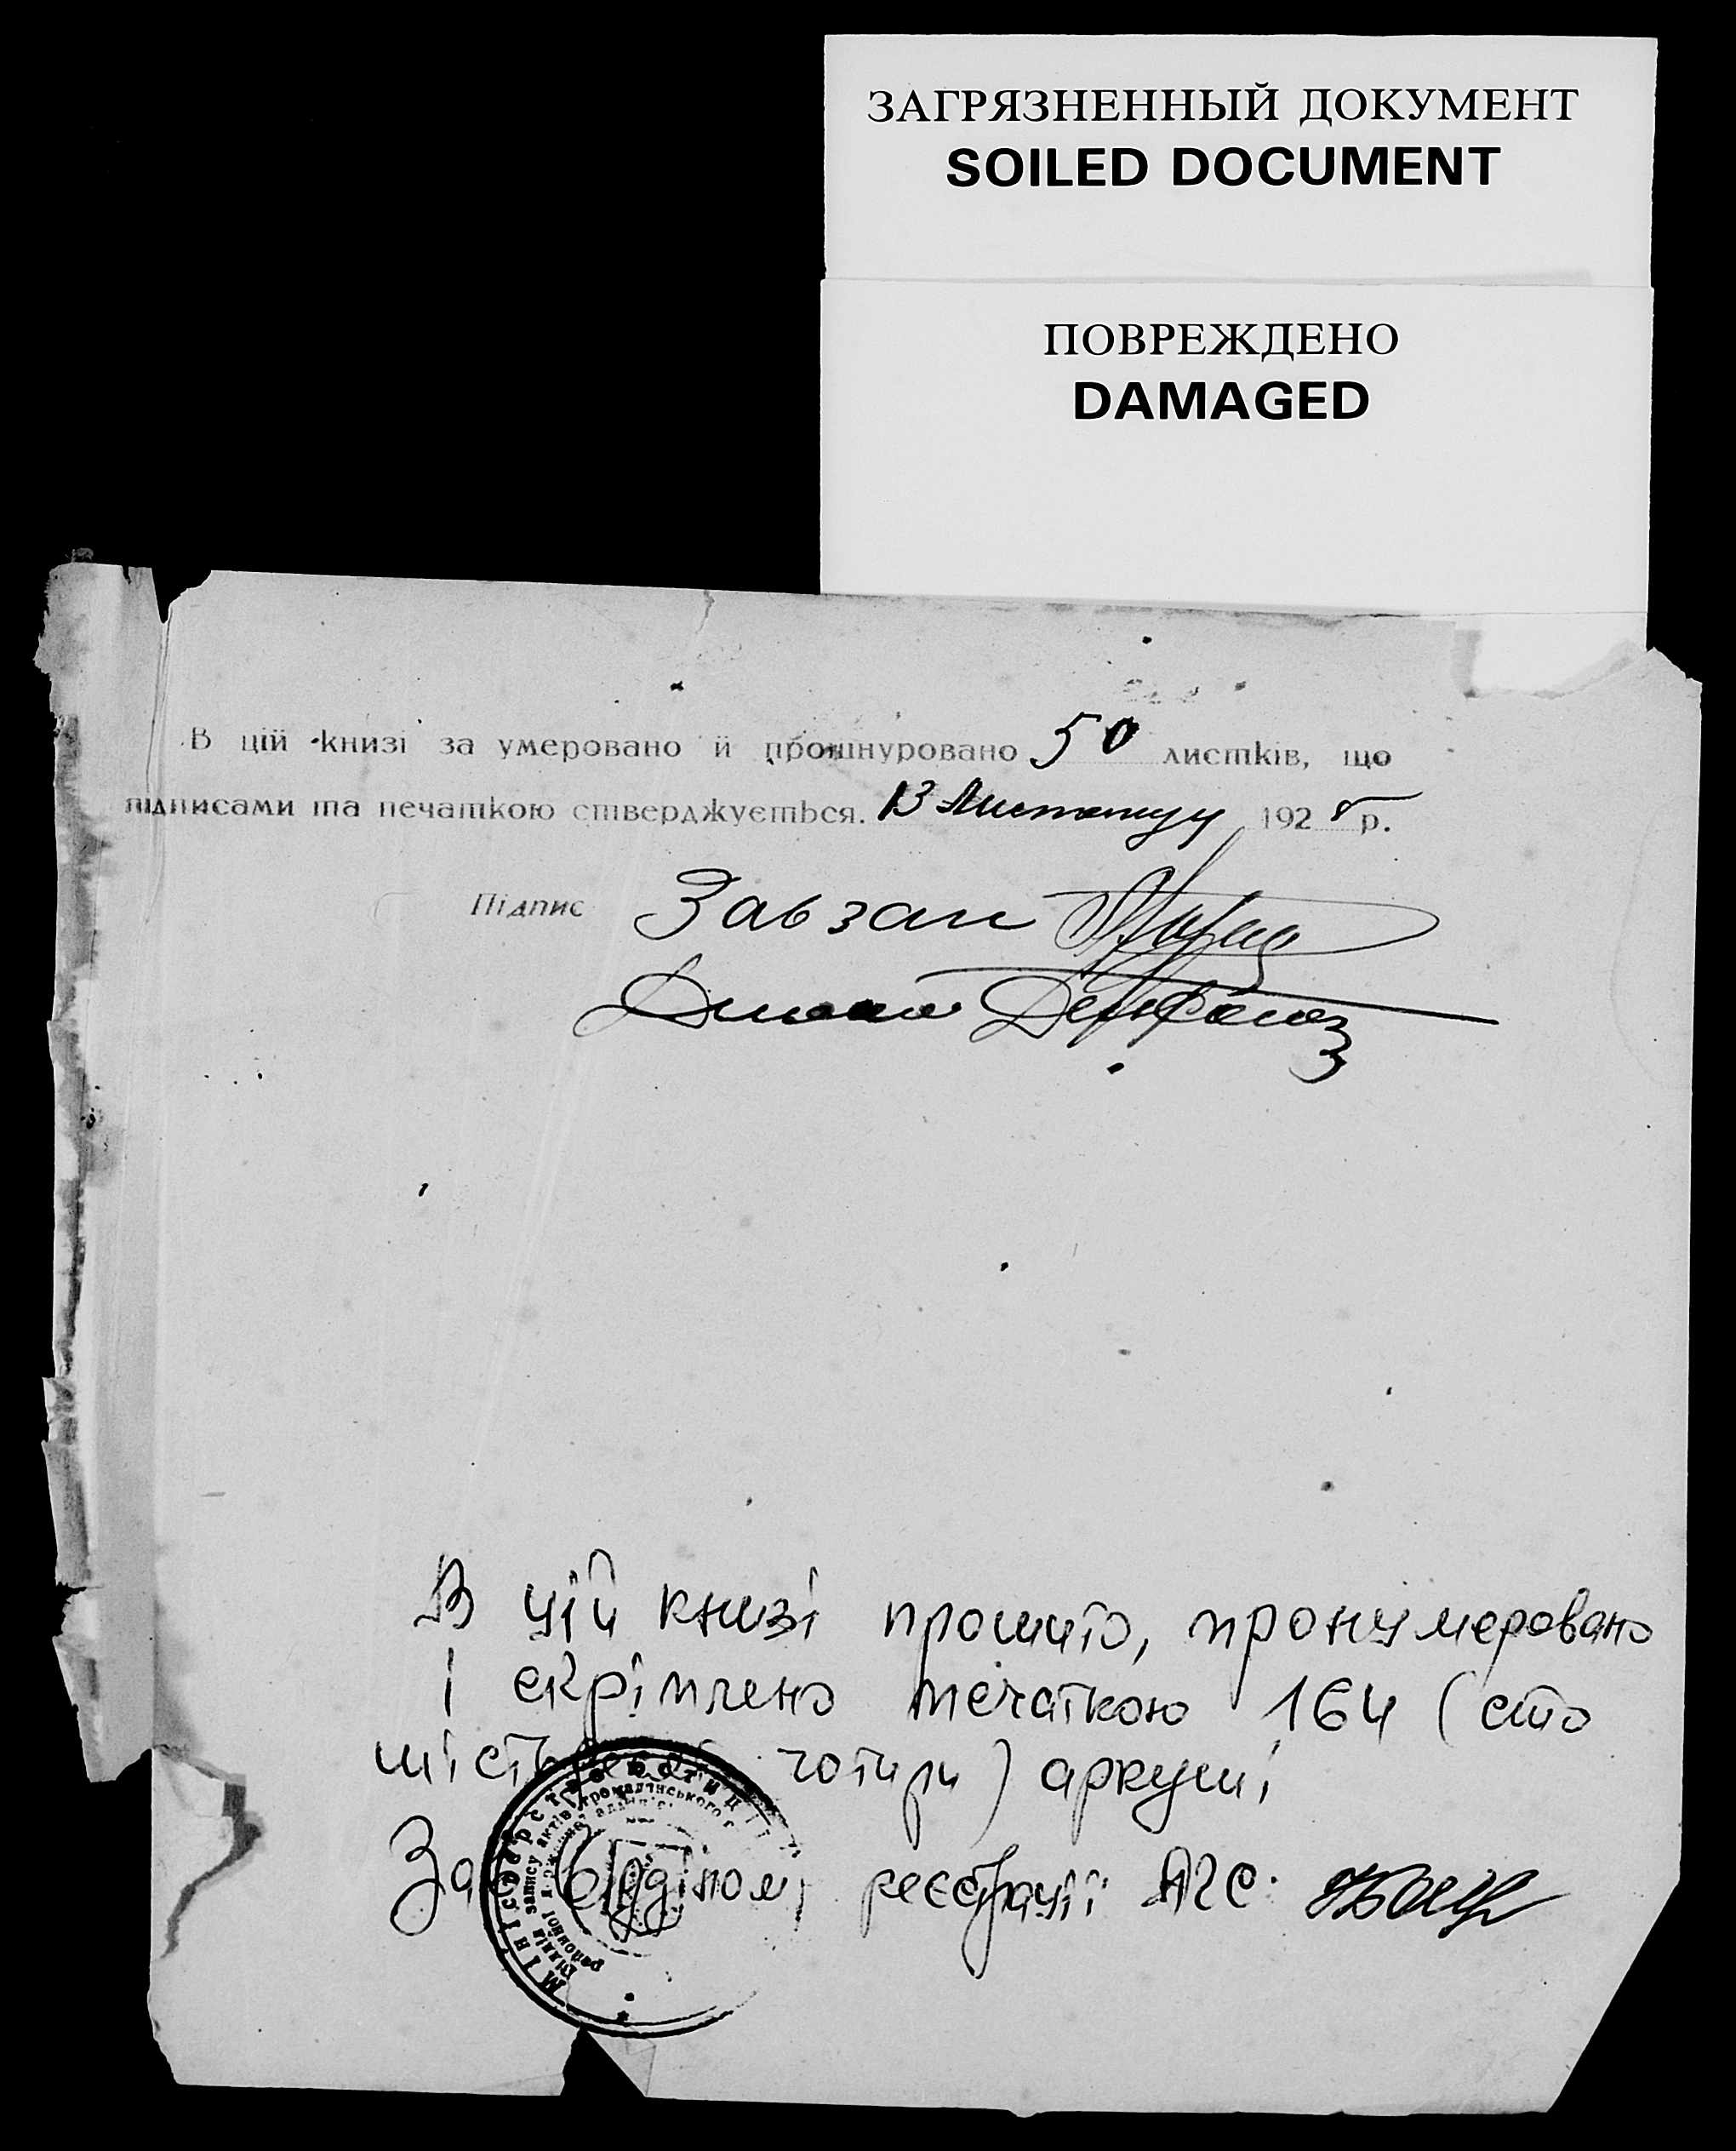 ЗАГРЯЗНЕННЫЙ ДОКУМЕНТ
SOILED DOCUMENT
ПОВРЕЖДЕНО
DAMAGED
В цій книзі за умеровано й прошнуровано 50 листків, що
підписами та печаткою стверджується. 13 Листопаду 1928 р.
Підпис Завзаг
В цій книзі прошито, пронумеровано
і скріплено печаткою 164 (сто
шістьдесят чотири) аркуші
Зав відділом реєстрації АГС
Міністерство юстиції
запису актів громадянського